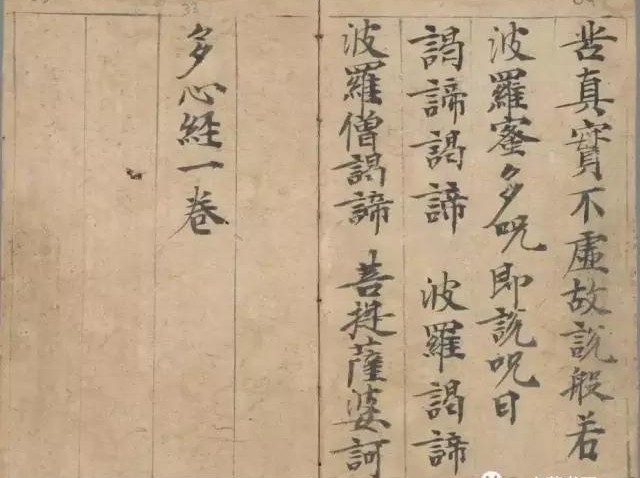 苦真實不虛故說般若
波羅蜜多呪即說呪曰
謁諦謁諦 波羅謁諦
波羅僧謁諦 菩提薩婆訶
多心經一卷
33